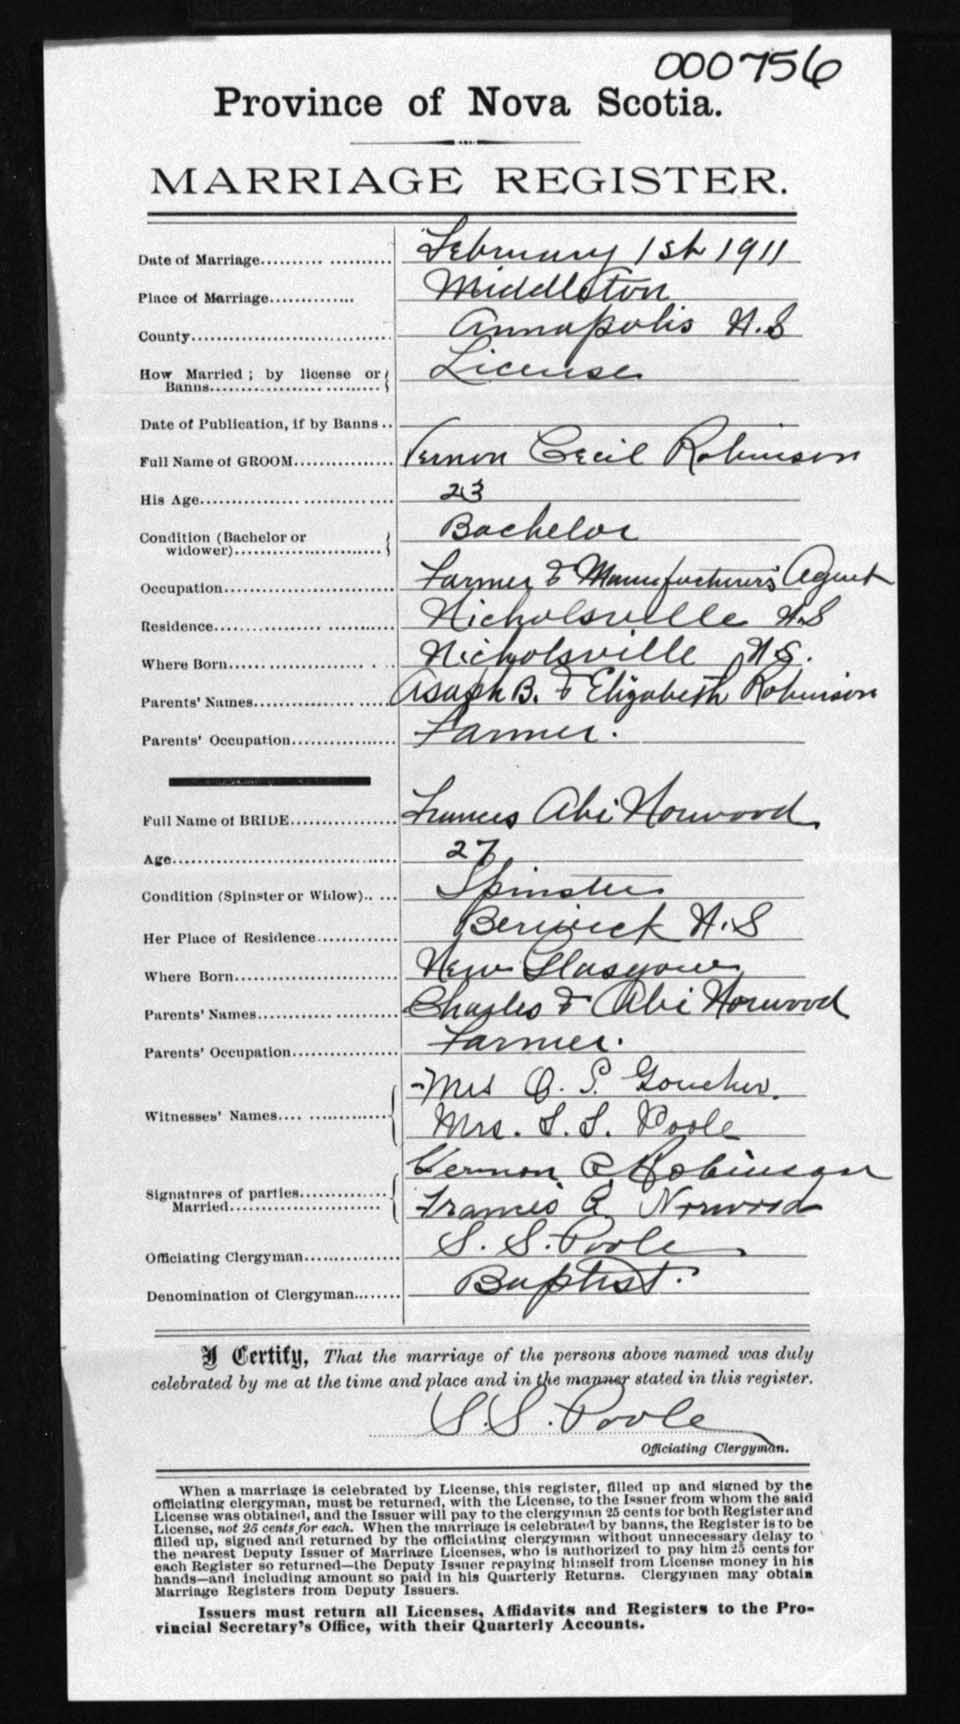 000756
Province of Nova Scotia.
MARRIAGE REGISTER.
Date of Marriage.......... .......... February 1st 1911
Place of Marriage.............. Middleton
County................................. Annapolis N.S
How Married ; by license or License
Banns.................... .........
Date of Publication, if by Banns ..
Full Name of GROOM................. Vernon Cecil Robinson
His Age.................... ............ 23
Condition (Bachelor or Bachelor
widower)..........................
Occupation............................. Farmer & Manufacturers Agent
Residence................. ........... Nicholsville N.S
Where Born.................... . .. Nicholsville N.S.
Parents' Names................. ..... Asaph B. & Elizabeth Robinson
Parents' Occupation.................. Farmer.
Full Name of BRIDE.................. Frances Abi Norwood
Age....................................... 27
Condition (Spinster or Widow).. ... Spinster
Her Place of Residence............. Berwick N.S
Where Born............................ New Glasgow
Parents' Names............. .......... Charles & Abi Norwood
Parents' Occupation.................. Farmer.
Mrs O. P. Goucher.
Witnesses' Names.... ..............
Mrs. S. S. Poole
Vernon C Robinson
Signatures of parties...............
Married.......................... Frances A Norwood
Officiating Clergyman............... S. S. Poole
Denomination of Clergyman........ Baptist.
I Certify, That the marriage of the persons above named was duly
celebrated by me at the time and place and in the manner stated in this register.
S. S. Poole
Officiating Clergyman.
When a marriage is celebrated by License, this register, filled up and signed by the
officiating clergyman, must be returned, with the License, to the Issuer from whom the said
License was obtained, and the Issuer will pay to the clergyman 25 cents for both Register and
License, not 25 cents for each. When the marriage is celebrated by banns, the Register is to be
filled up, signed and returned by the officiating clergyman without unnecessary delay to
the nearest Deputy Issuer of Marriage Licenses, who is authorized to pay him 25 cents for
each Register so returned—the Deputy Issuer repaying himself from License money in his
hands—and including amount so paid in his Quarterly Returns. Clergymen may obtain
Marriage Registers from Deputy Issuers.
Issuers must return all Licenses, Affidavits and Registers to the Pro-
vincial Secretary's Office, with their Quarterly Accounts.